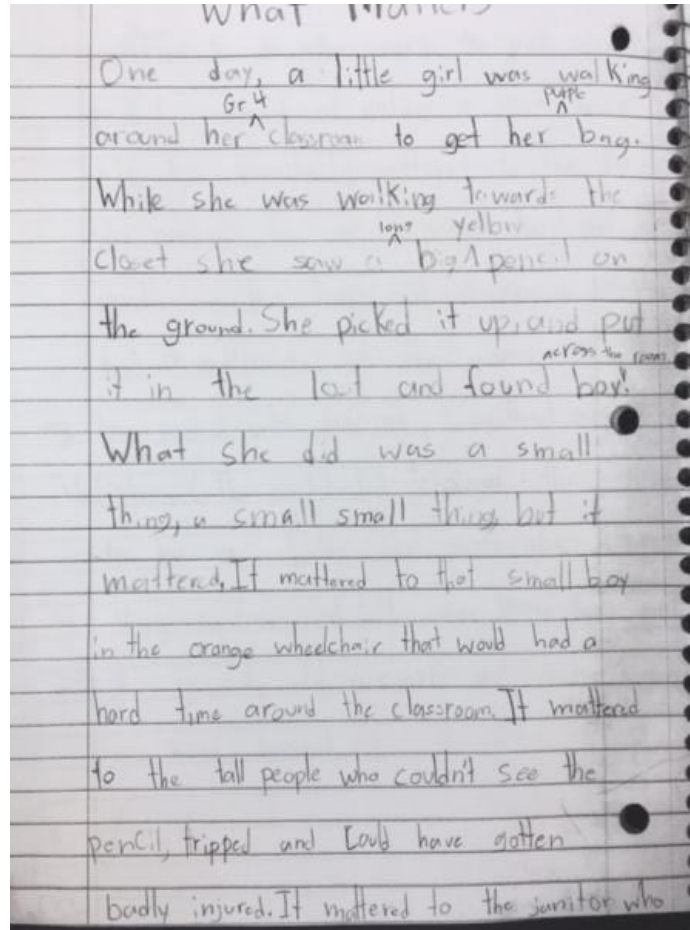 What Matters
One day, a little girl was walking
Gr 4 purple
around her ^ classroom to get her ^ bag.
While she was walking towards the
long yellow
closet she saw a ^ big ^ pencil on
the ground. She picked it up, and put
across the room
it in the lost and found box!
What she did was a small
thing, a small small thing, but it
mattered. It mattered to that small boy
in the orange wheelchair that would had a
hard time around the classroom. It mattered
to the tall people who couldn't see the
pencil, tripped and could have gotten
badly injured. It mattered to the janitor who